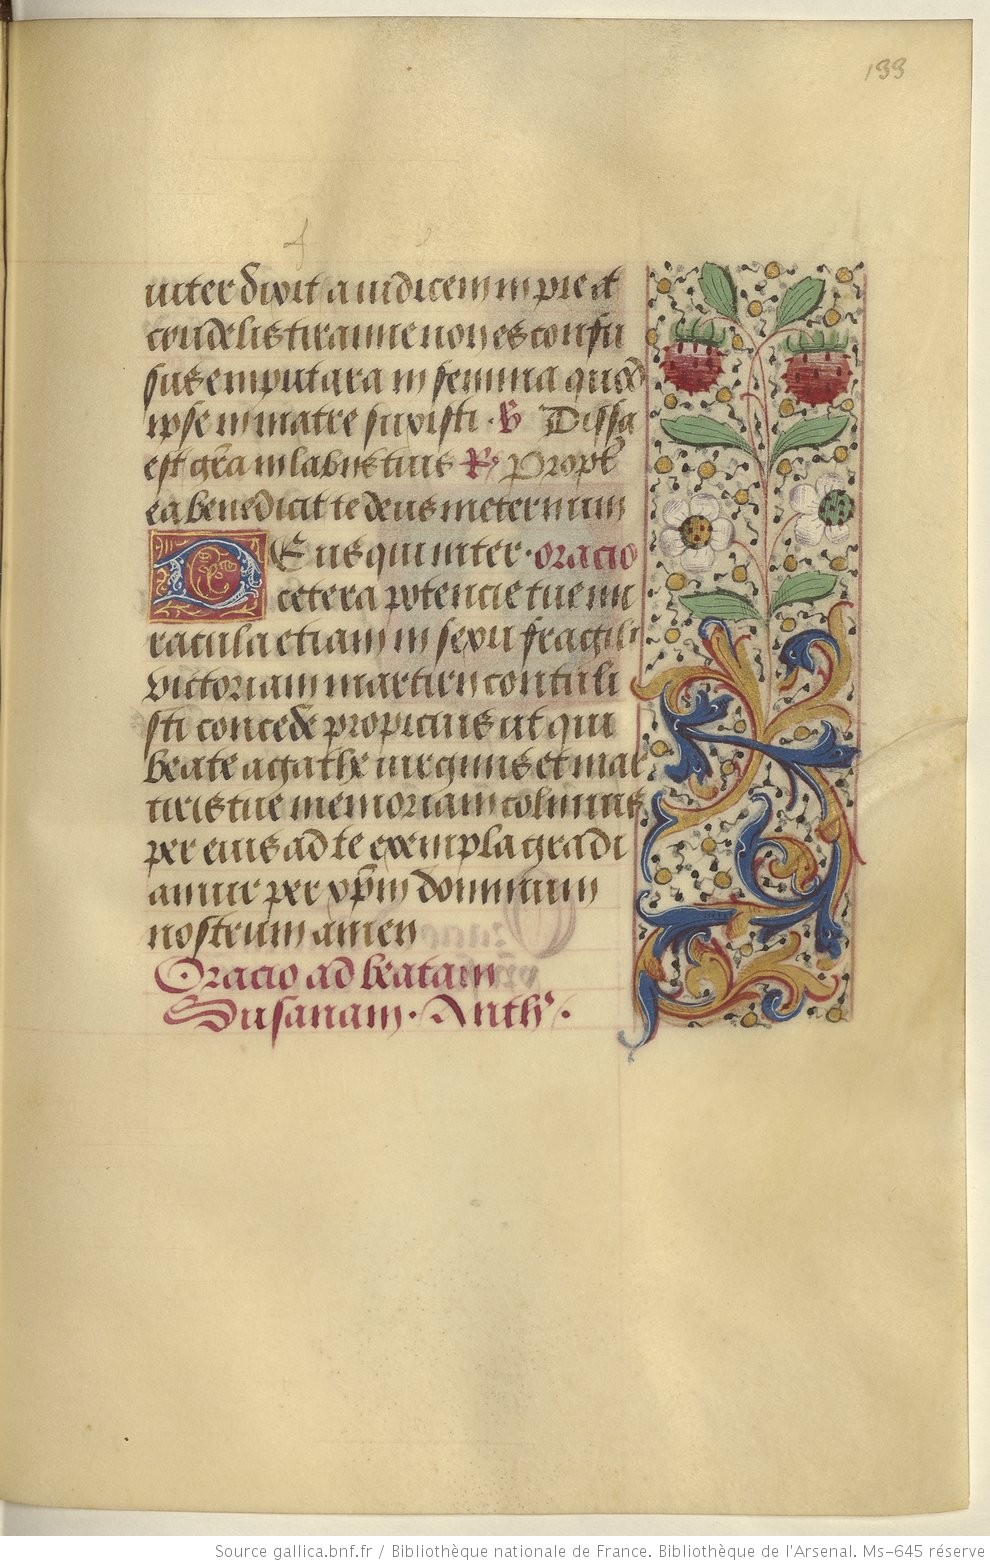 133
inter dixit a iudicem impie et
crudelis tiranne non es confu
sus emputara in femina quod
ipse in matre suxisti. ℣ Diffusa
est gr̃a in labiis tuis ℟ Propt̃
ea benedicit te deus in eternum
Deus qui inter. oracio
cetera potencie tue mi
racula etiam in sexu fragili
victoriam martirii contuli
sti concede propicius ut qui
beate agathe virginis et mar
tiris tue memoriam colimus
per eius ad te exempla gradi
amur per xp̃m dominum
nostrum amen
Oracio ad beatam
Susanam. Anth'.
Source gallica.bnf.fr / Bibliothèque nationale de France. Bibliothèque de l'Arsenal. Ms-645 réserve